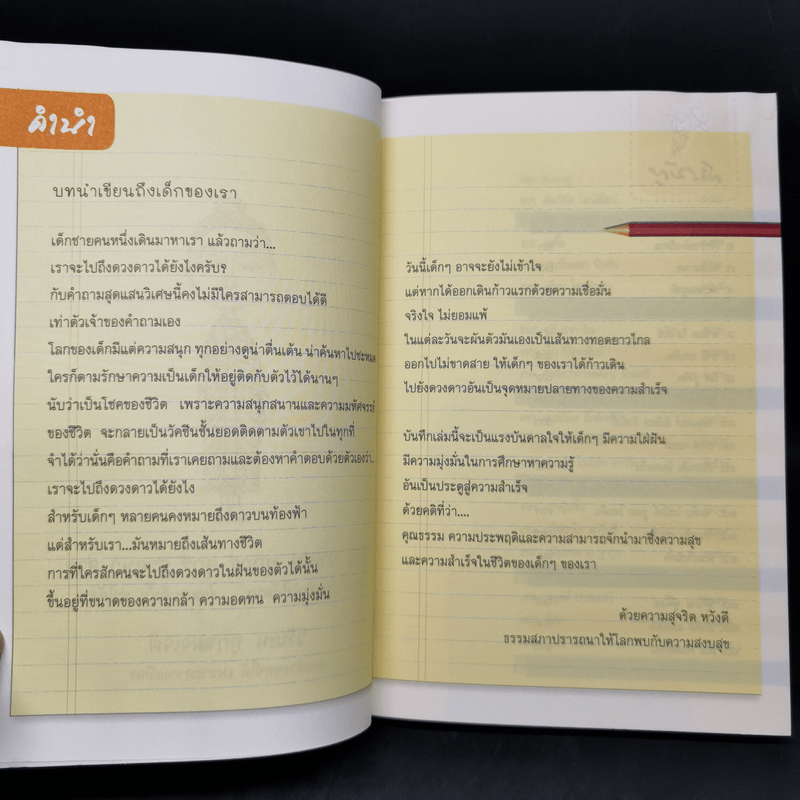 คำนำ
บทนำเขียนถึงเด็กของเรา
เด็กชายคนหนึ่งเดินมาหาเรา แล้วถามว่า...
เราจะไปถึงดวงดาวได้ยังไงครับ?
กับคำถามสุดแสนวิเศษนี้คงไม่มีใครสามารถตอบได้ดี
เท่าตัวเจ้าของคำถามเอง
โลกของเด็กมีแต่ความสนุก ทุกอย่างดูน่าตื่นเต้น น่าค้นหาไปซะหมด
ใครก็ตามรักษาความเป็นเด็กให้อยู่ติดกับตัวไว้ได้นานๆ
นับว่าเป็นโชคของชีวิต เพราะความสนุกสนานและความมหัศจรรย์
ของชีวิต จะกลายเป็นวัคซีนชั้นยอดติดตามตัวเขาไปในทุกที่
จำได้ว่านั่นคือคำถามที่เราเคยถามและต้องหาคำตอบด้วยตัวเองว่า...
เราจะไปถึงดวงดาวได้ยังไง
สำหรับเด็กๆ หลายคนคงหมายถึงดาวบนท้องฟ้า
แต่สำหรับเรา...มันหมายถึงเส้นทางชีวิต
การที่ใครสักคนจะไปถึงดวงดาวในฝันของตัวได้นั้น
ขึ้นอยู่ที่ขนาดของความกล้า ความอดทน ความมุ่งมั่น
วันนี้เด็กๆ อาจจะยังไม่เข้าใจ
แต่หากได้ออกเดินก้าวแรกด้วยความเชื่อมั่น
จริงใจ ไม่ยอมแพ้
ในแต่ละวันจะผันตัวมันเองเป็นเส้นทางทอดยาวไกล
ออกไปไม่ขาดสาย ให้เด็กๆ ของเราได้ก้าวเดิน
ไปยังดวงดาวอันเป็นจุดหมายปลายทางของความสำเร็จ
บันทึกเล่มนี้จะเป็นแรงบันดาลใจให้เด็กๆ มีความใฝ่ฝัน
มีความมุ่งมั่นในการศึกษาหาความรู้
อันเป็นประตูสู่ความสำเร็จ
ด้วยคติที่ว่า....
คุณธรรม ความประพฤติและความสามารถจักนำมาซึ่งความสุข
และความสำเร็จในชีวิตของเด็กๆ ของเรา
ด้วยความสุจริต หวังดี
ธรรมสภาปรารถนาให้โลกพบกับความสงบสุข